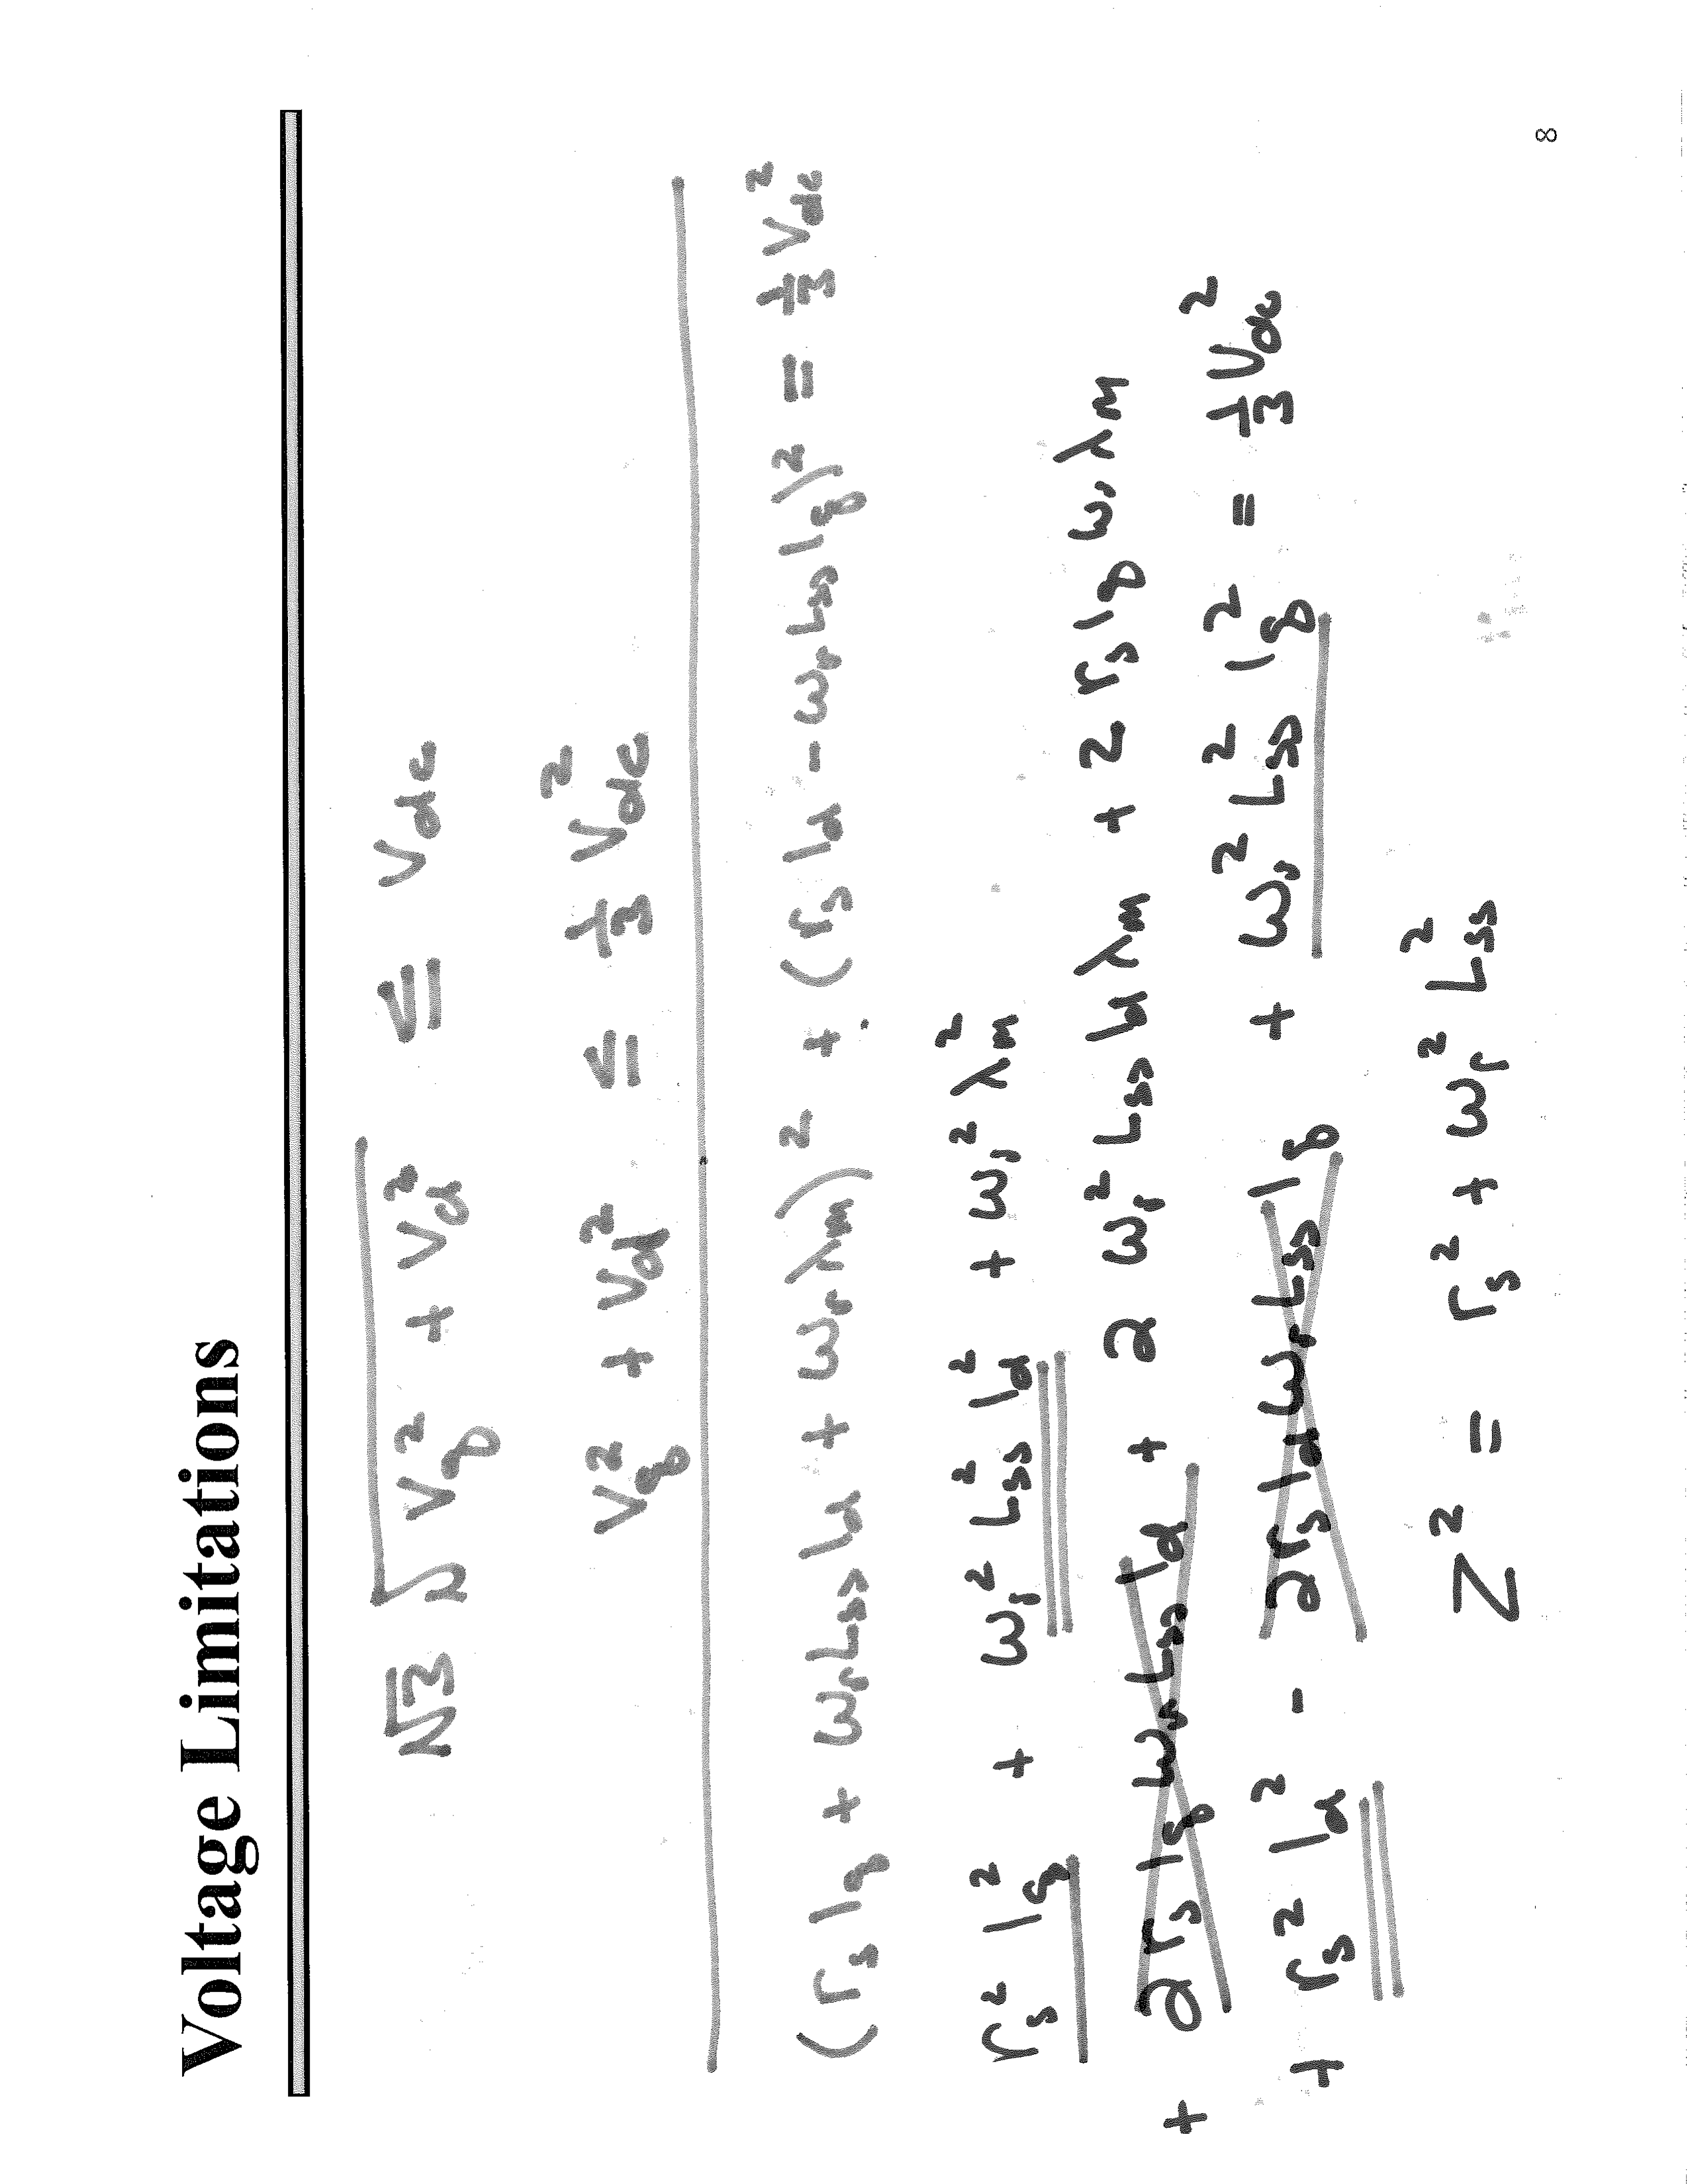 Voltage Limitations
√3 √(v_q² + v_d²) ≤ v_dc
v_q² + v_d² ≤ 1/3 v_dc²
(r_s i_q + ω_r L_ss i_d + ω_r λ_m)² + (r_s i_d - ω_r L_ss i_q)² = 1/3 v_dc²
r_s² i_q² + ω_r² L_ss² i_d² + ω_r² λ_m²
+ 2 r_s i_q ω_r L_ss i_d + 2 ω_r² L_ss i_d λ_m + 2 r_s i_q ω_r λ_m
+ r_s² i_d² - 2 r_s i_d ω_r L_ss i_q + ω_r² L_ss² i_q² = 1/3 v_dc²
Z² = r_s² + ω_r² L_ss²
8